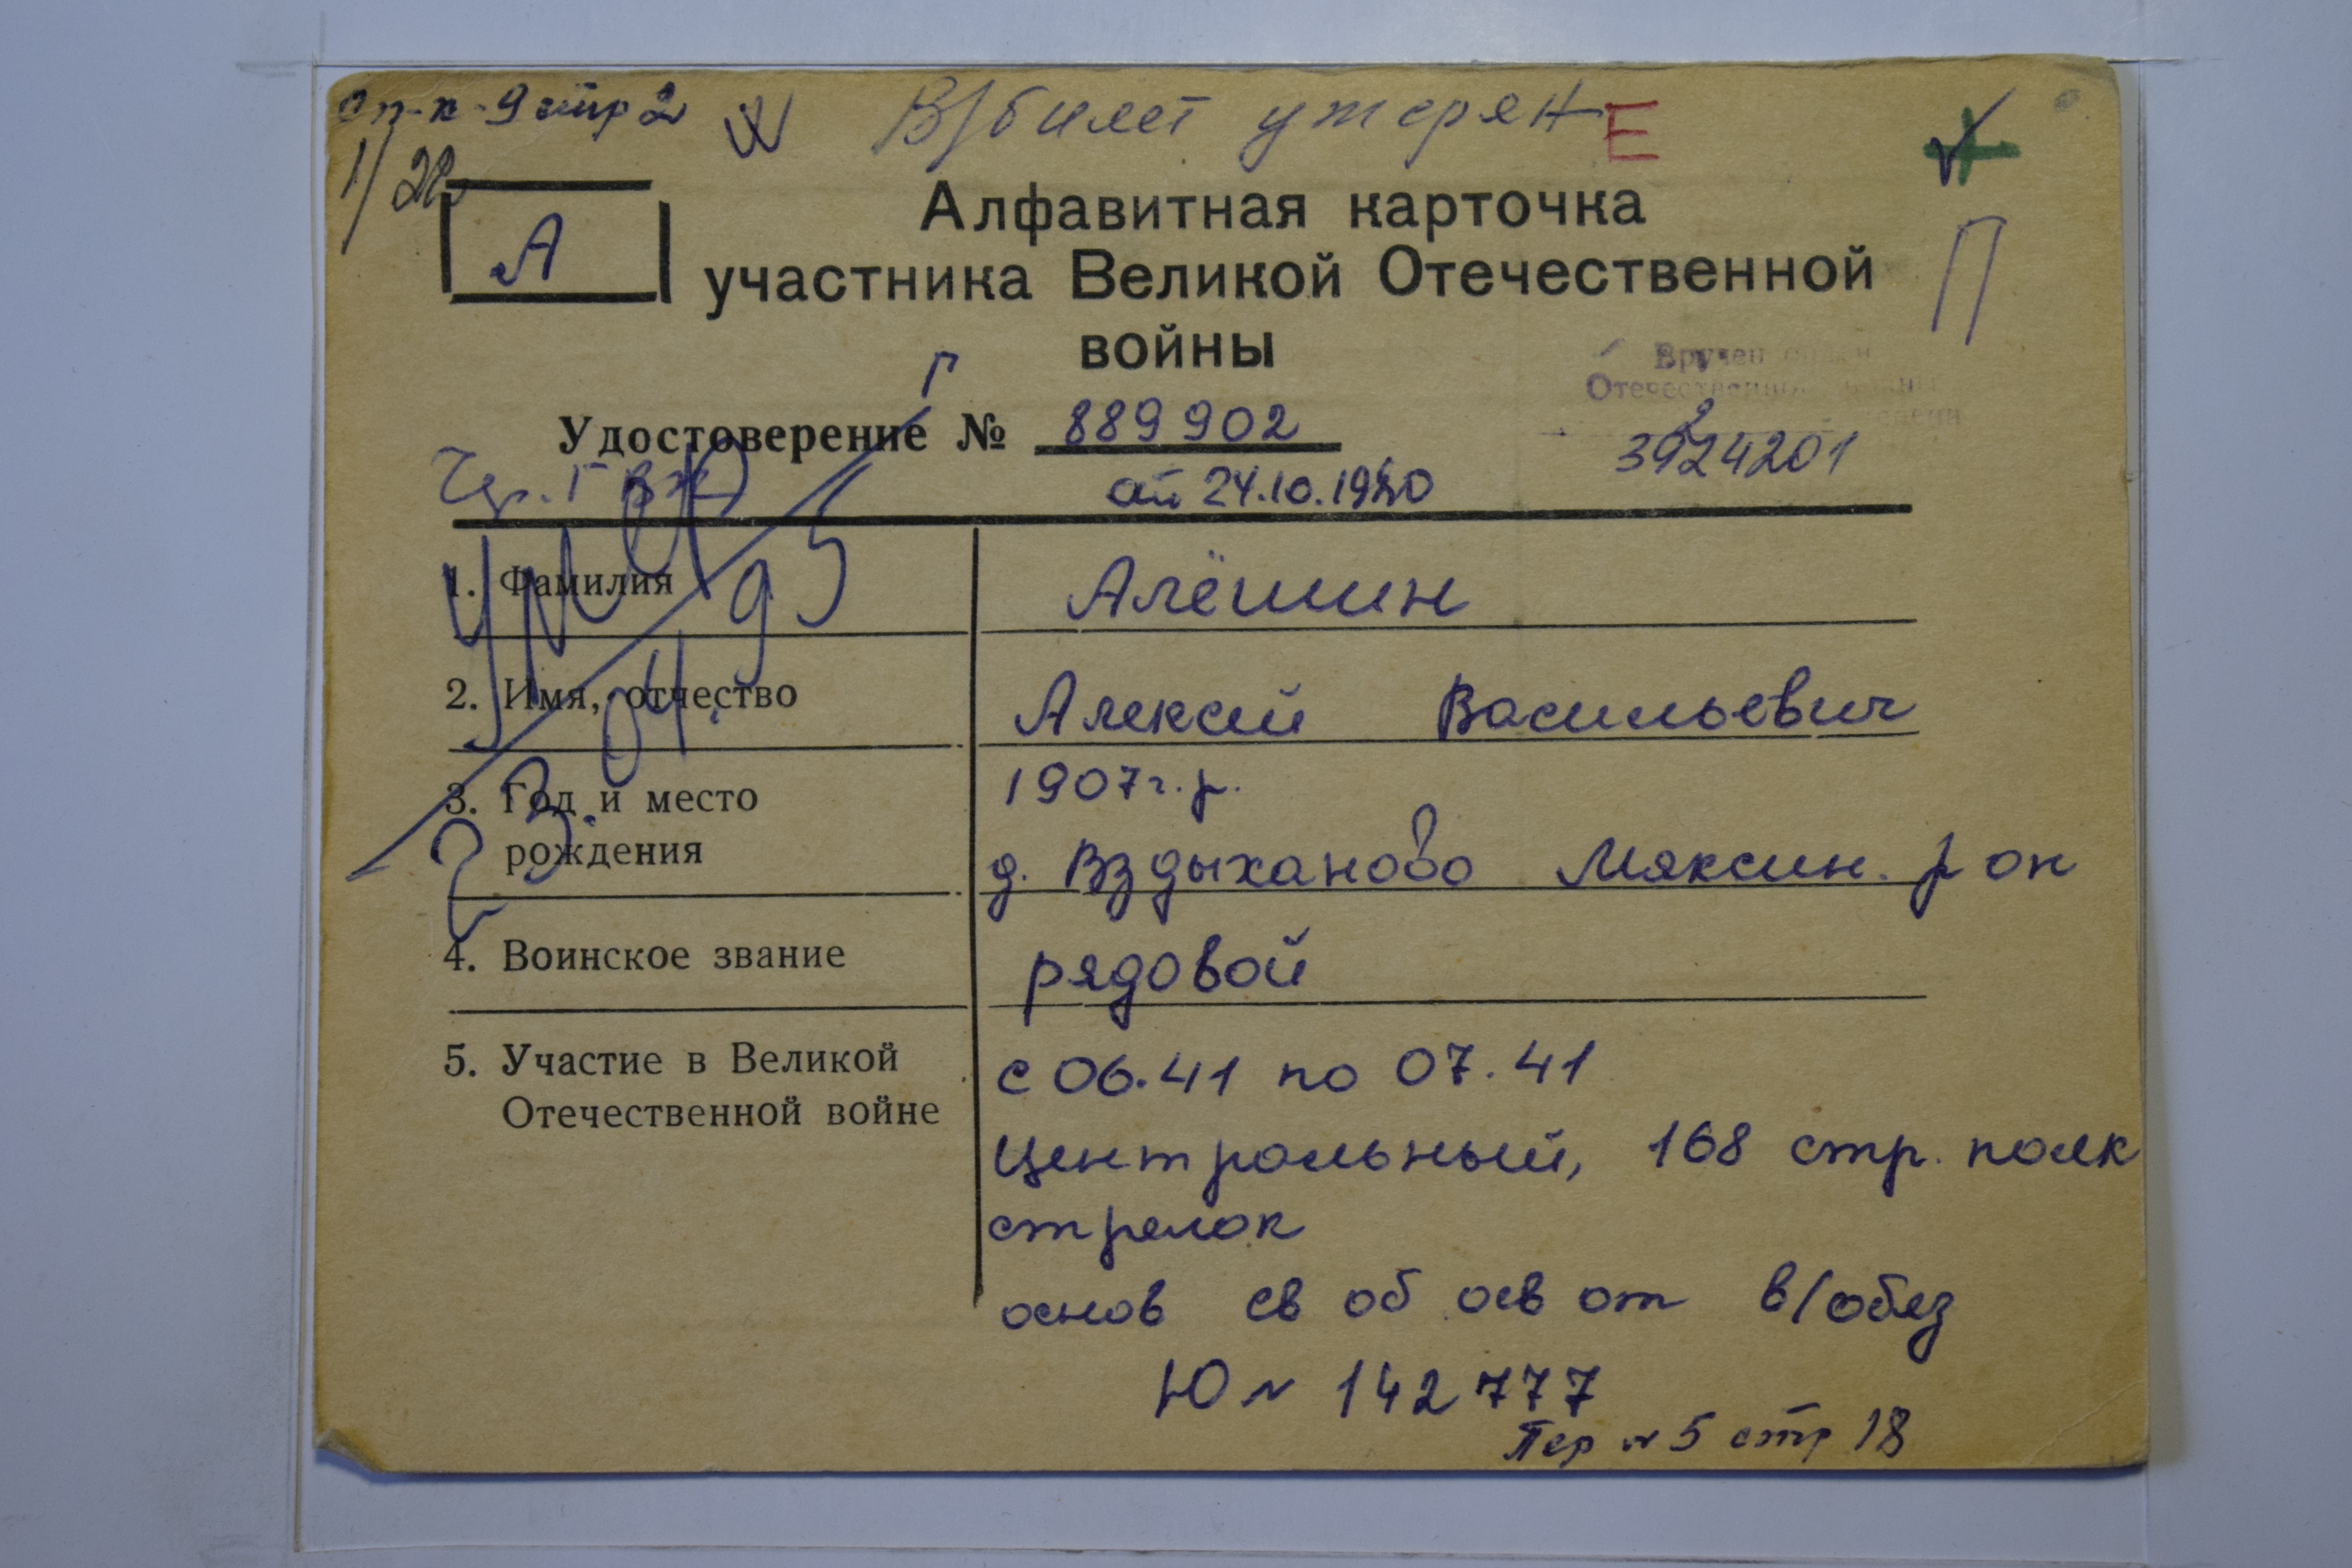 оп-к-9 стр 2 В/билет утерян Е
1/22
А
П
Алфавитная карточка
участника Великой Отечественной
войны
Вручен орден
Отечественной войны
2 степени
Удостоверение № 889902
3924201
от 24.10.1980
умер 23.04.95 г
1. Фамилия Алёшин
2. Имя, отчество Алексей Васильевич
3. Год и место 1907 г.р.
рождения д. Вздыханово Мяксин. р он
4. Воинское звание рядовой
5. Участие в Великой с 06.41 по 07.41
Отечественной войне
Центральный, 168 стр. полк
стрелок
основ св об осв от в/обяз
Ю № 142777
Пер № 5 стр 18